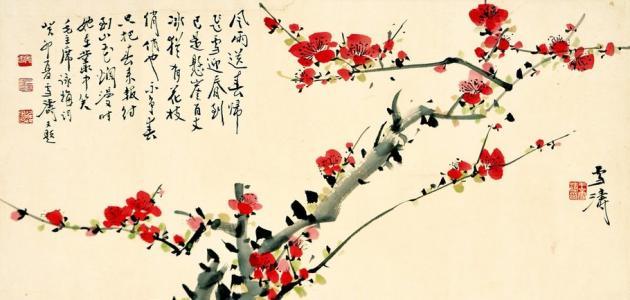 風雨送春歸
飛雪迎春到
已是懸崖百丈
冰猶有花枝
俏俏也不爭春
只把春來報待
到山花爛漫時
她在叢中笑
毛主席詠梅詞
癸卯 雪濤又題
雪濤